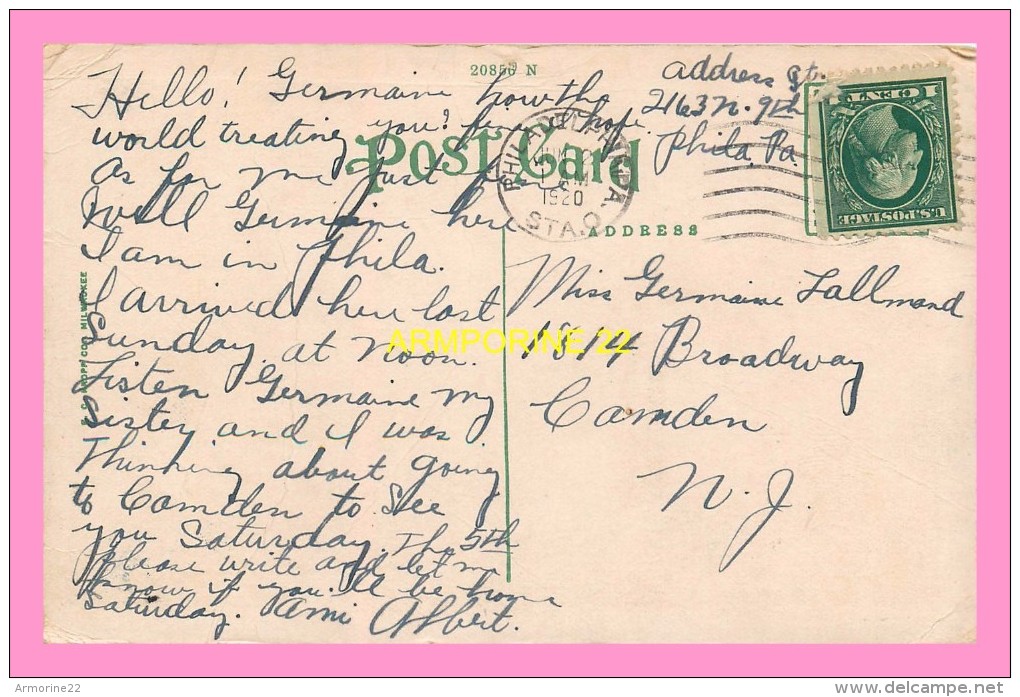 20856 N
Hello! Germaine how the
world treating you? fine I hope.
As for me just fine
Well Germaine here
I am in Phila.
I arrived here last
Sunday at noon.
Listen Germaine my
Sister and I was
Thinking about going
to Camden to See
you Saturday. The 5th
please write and let me
know if you'll be home
Saturday. Ami Albert.
address St.
2163 N. 9th
Phila, Pa.
POST Card
PHILADELPHIA, PA.
1920
STA. O.
1 CENT 1
U.S. POSTAGE
ADDRESS
Miss Germaine Lallmand
1814 Broadway
Camden
N. J.
CO., MILWAUKEE
ARMPORINE 22
Armorine22
http://www.delcampe.net